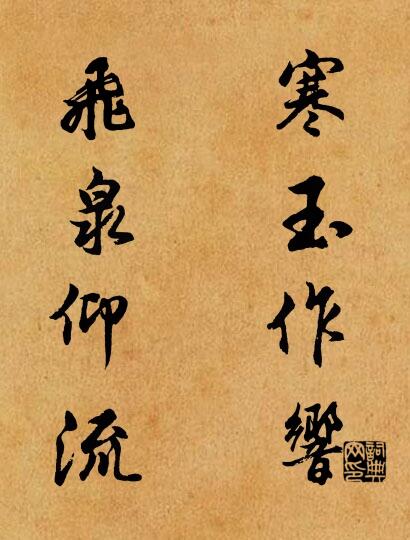 寒玉作響
飛泉仰流
詞典網印